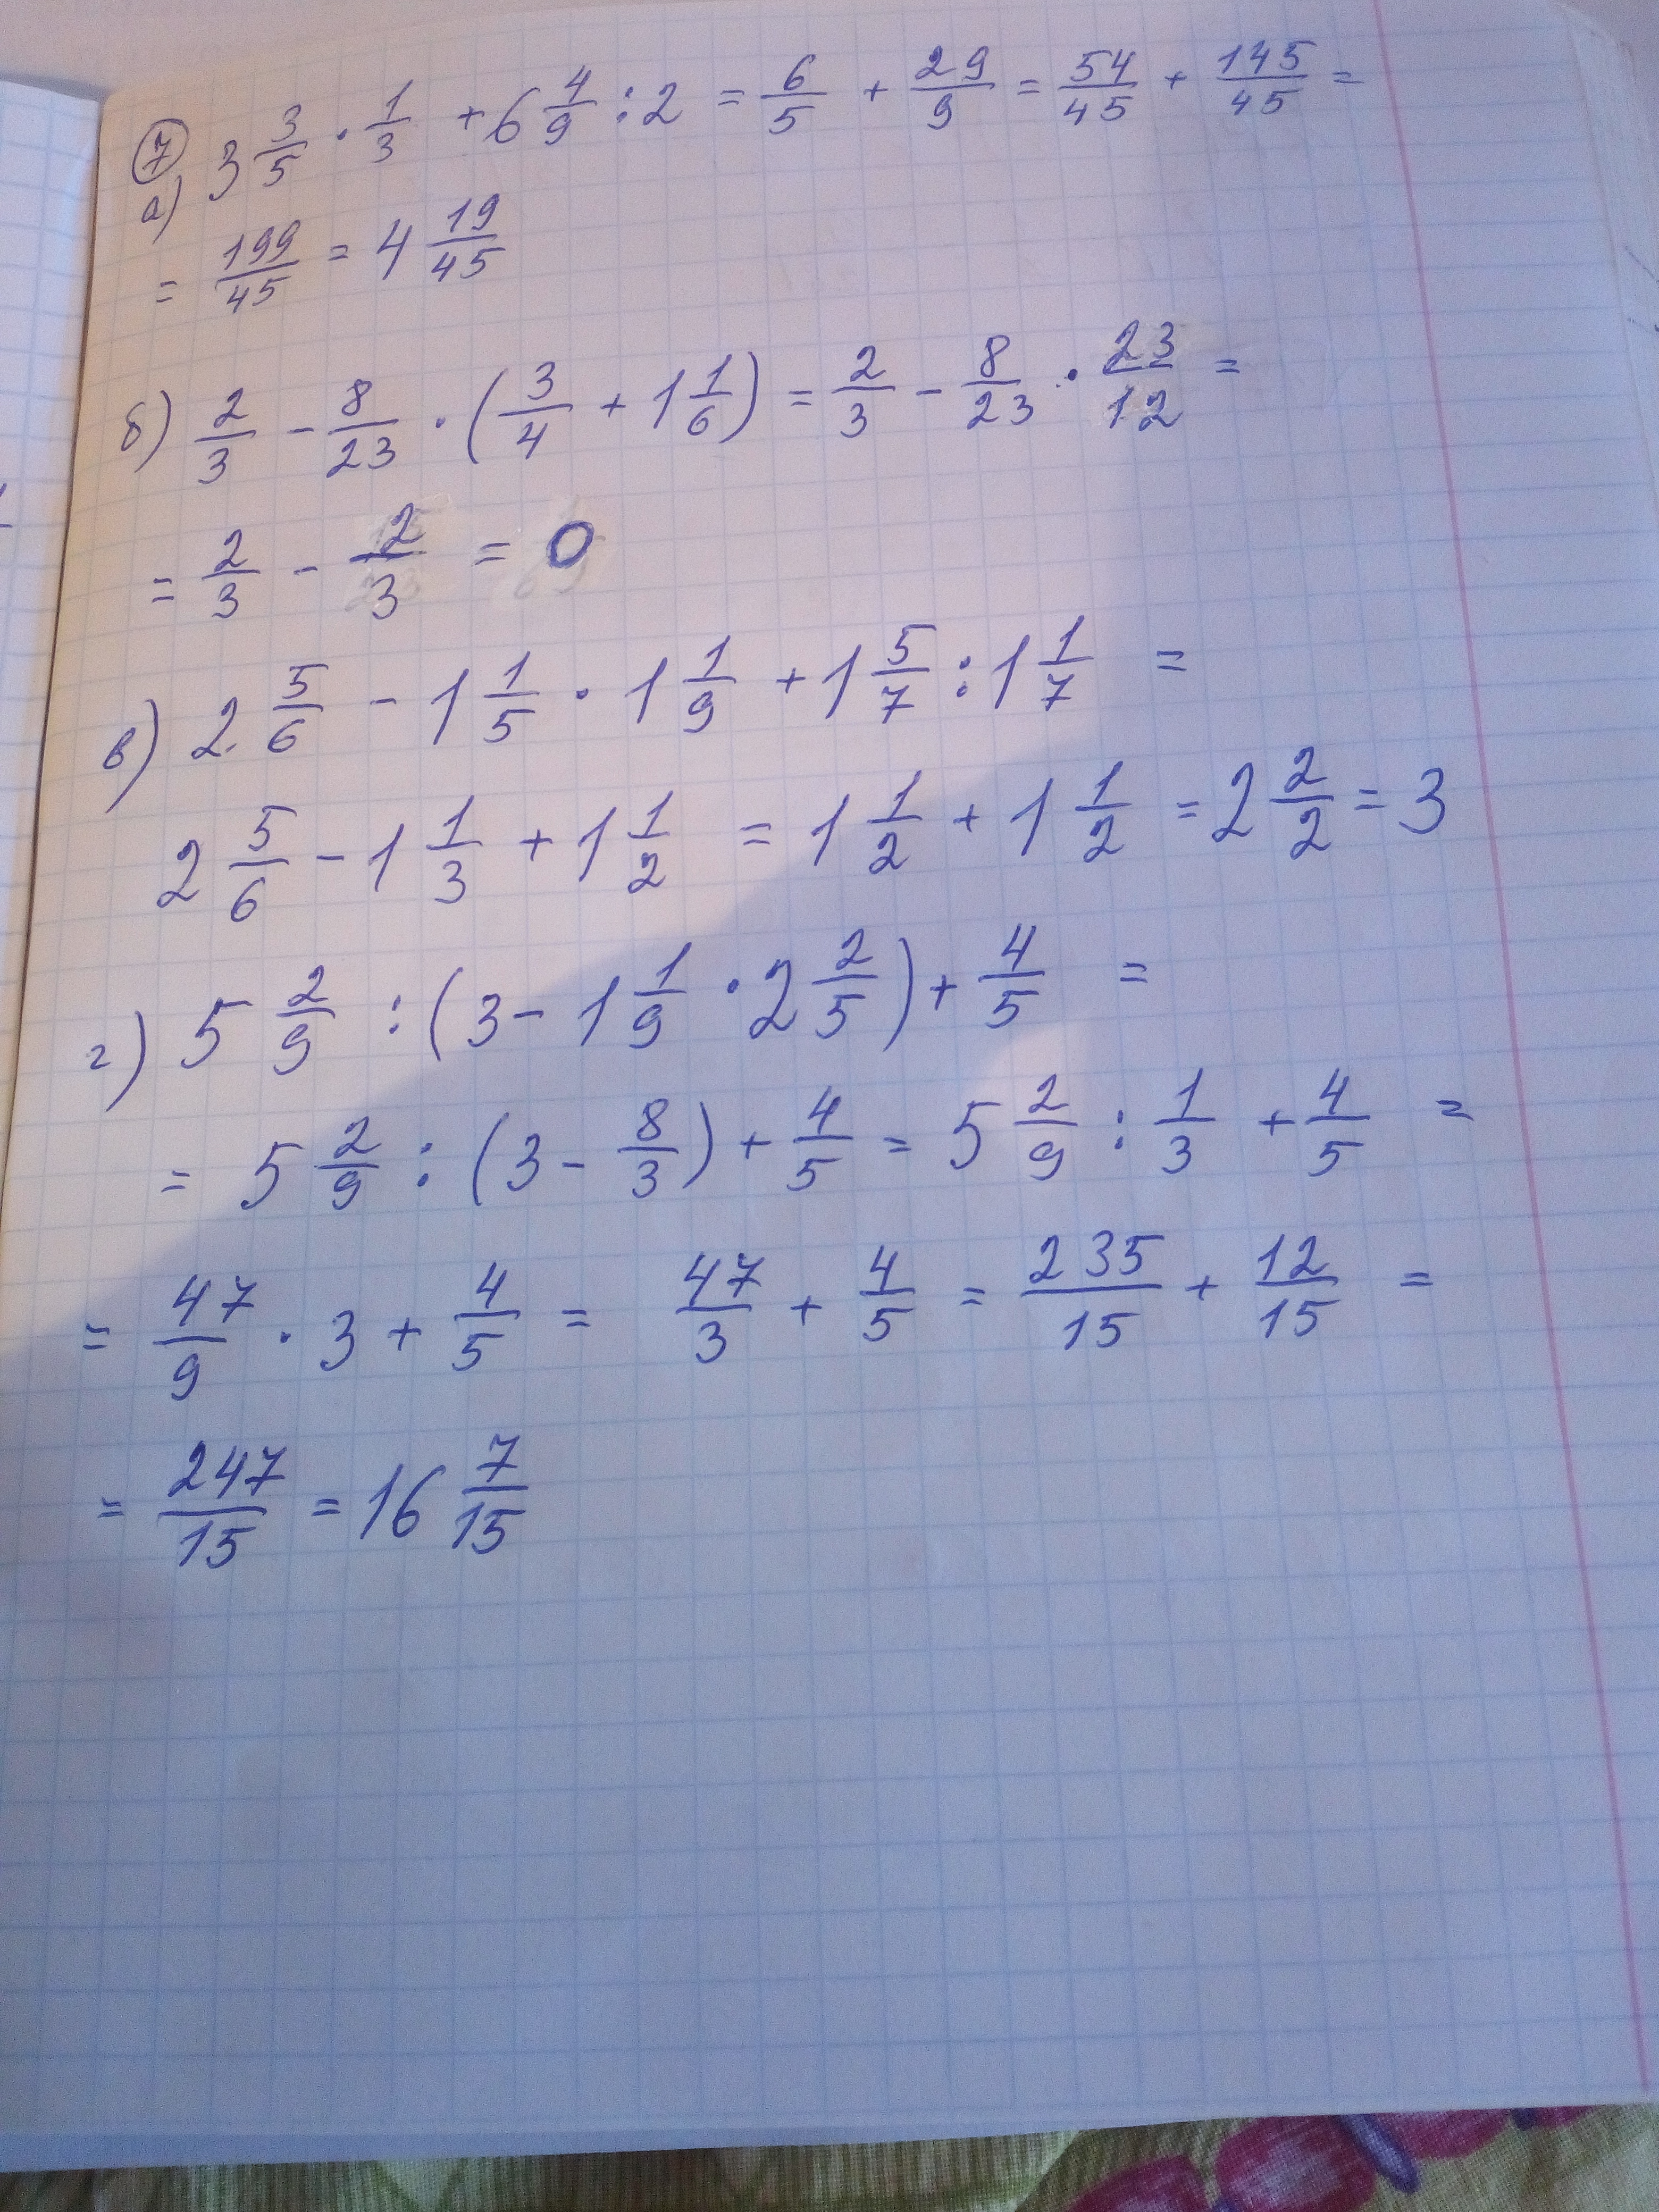 ⑦
а) 3 3/5 · 1/3 + 6 4/9 : 2 = 6/5 + 29/9 = 54/45 + 145/45 =
= 199/45 = 4 19/45
б) 2/3 - 8/23 · (3/4 + 1 1/6) = 2/3 - 8/23 · 23/12 =
= 2/3 - 2/3 = 0
в) 2 5/6 - 1 1/5 · 1 1/9 + 1 5/7 : 1 1/7 =
2 5/6 - 1 1/3 + 1 1/2 = 1 1/2 + 1 1/2 = 2 2/2 = 3
г) 5 2/9 : (3 - 1 1/9 · 2 2/5) + 4/5 =
= 5 2/9 : (3 - 8/3) + 4/5 = 5 2/9 : 1/3 + 4/5 =
= 47/9 · 3 + 4/5 = 47/3 + 4/5 = 235/15 + 12/15 =
= 247/15 = 16 7/15